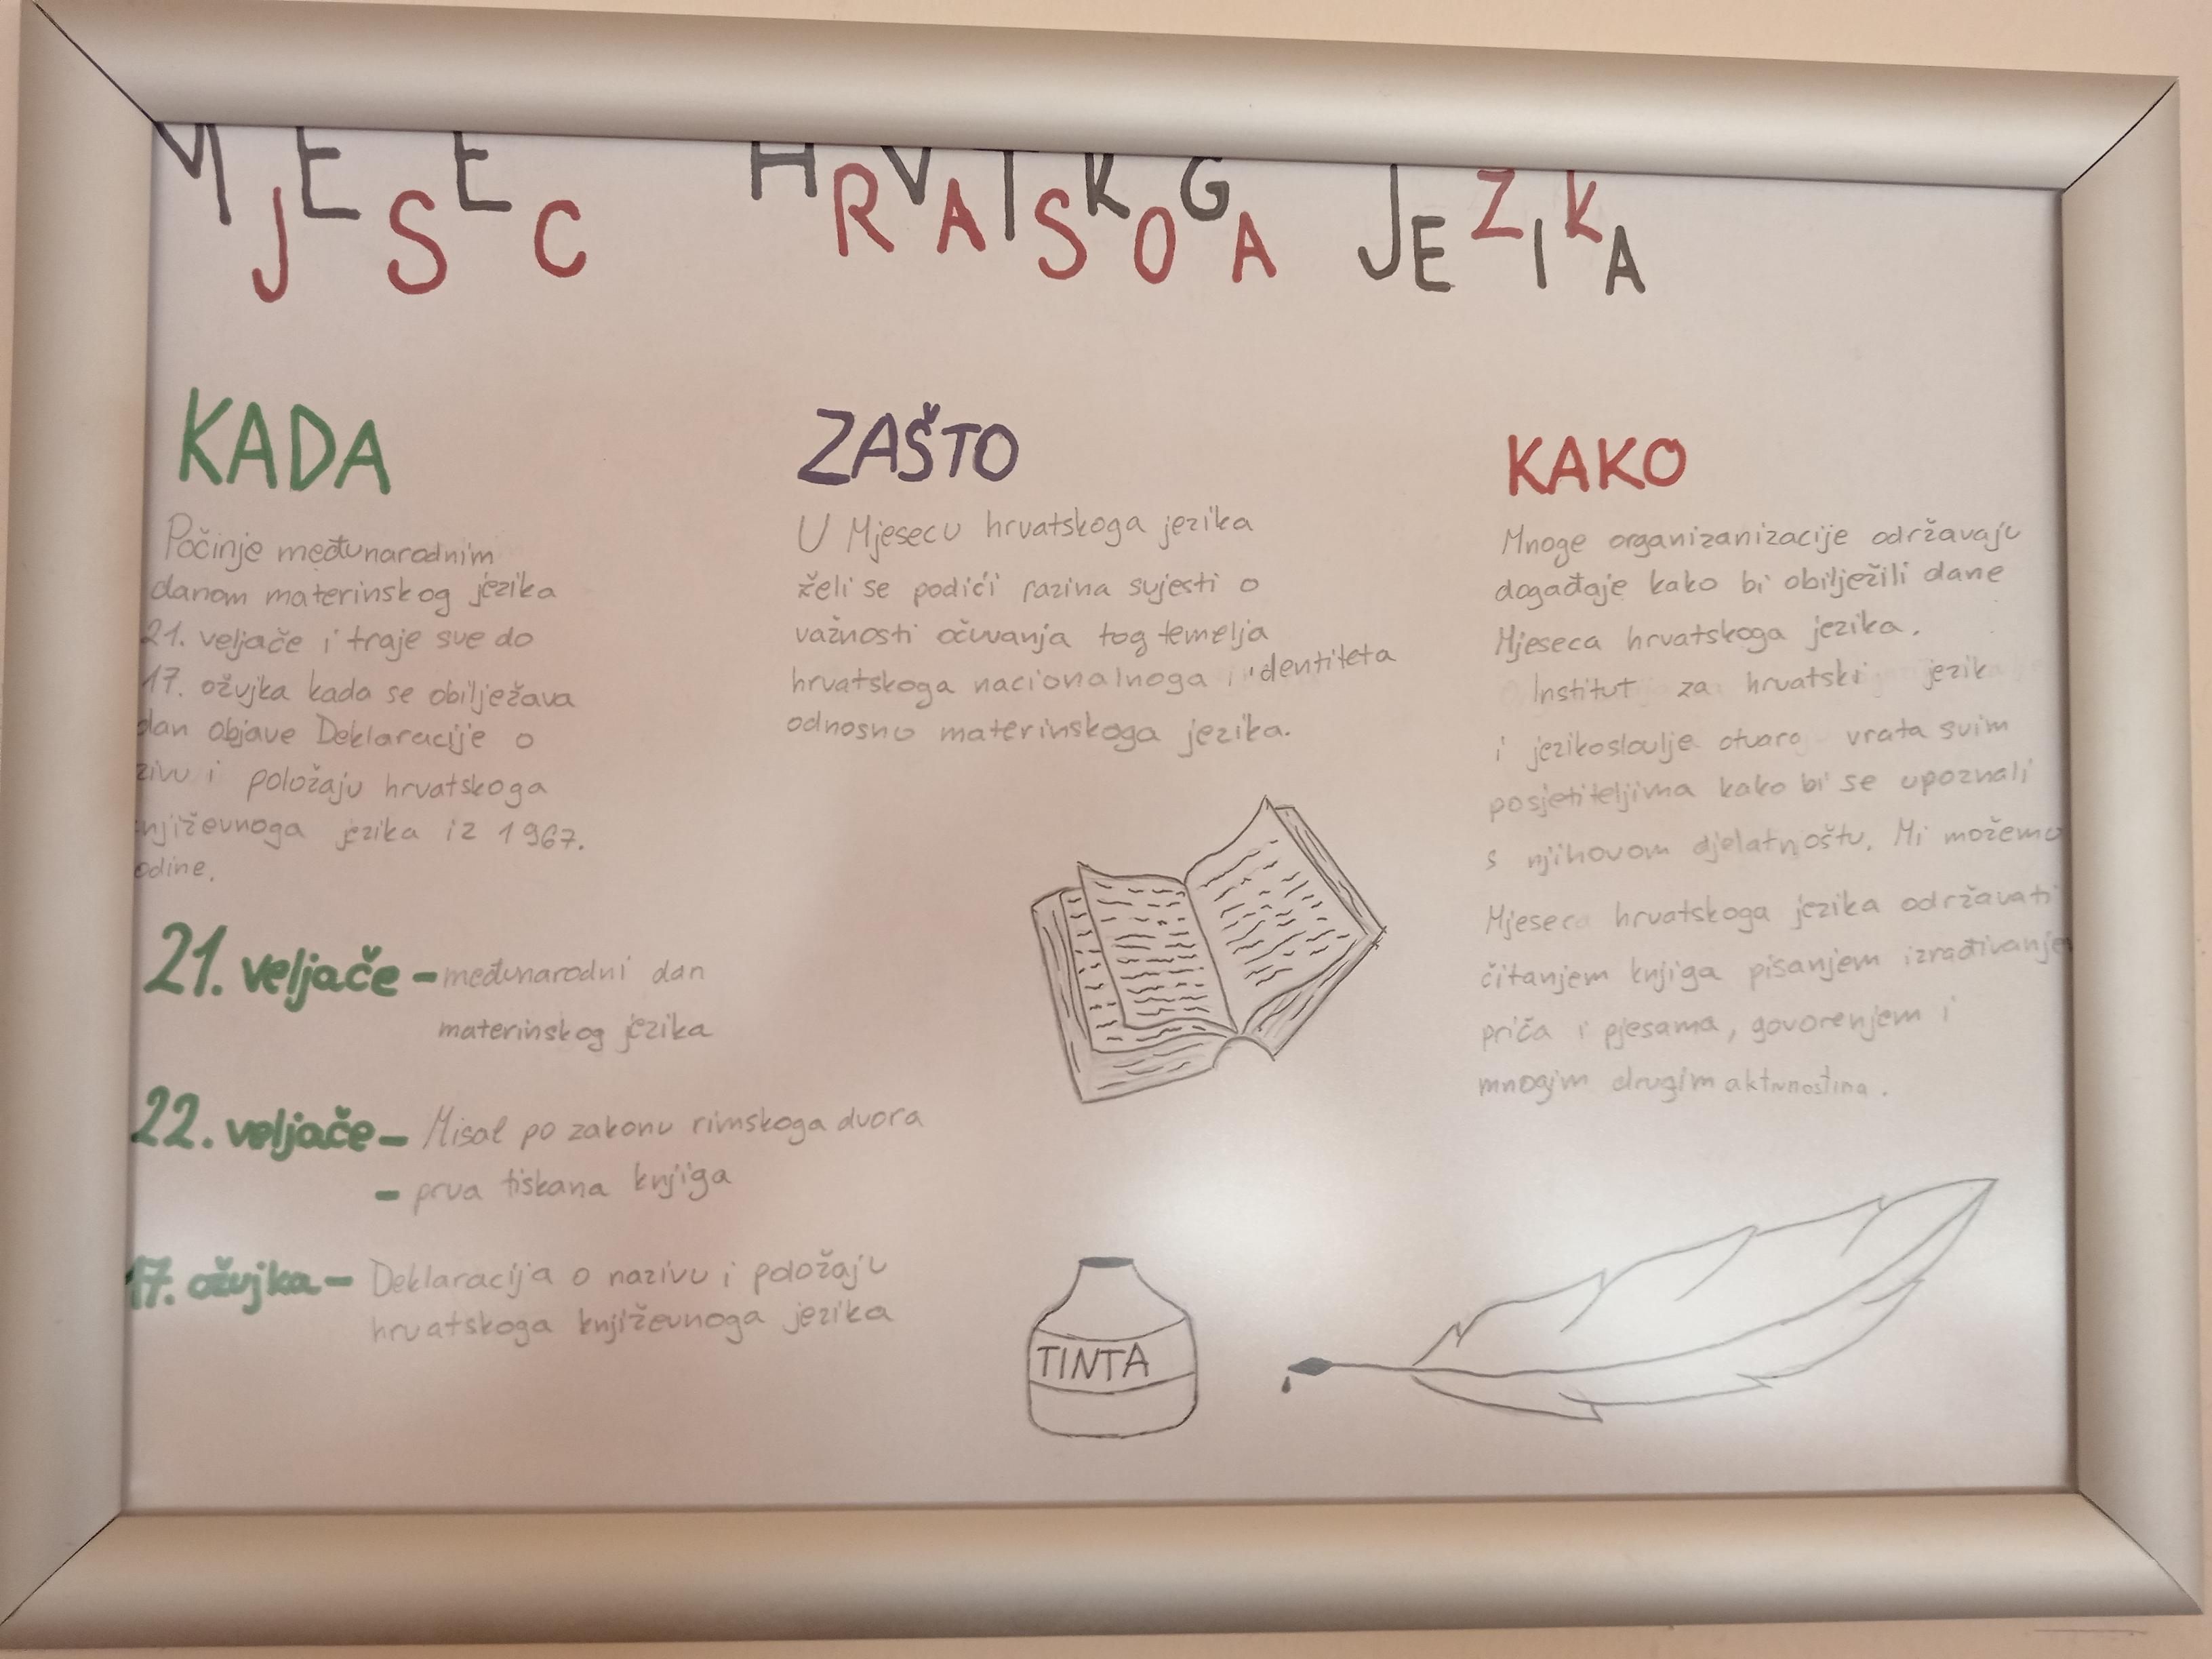 MJESEC HRVATSKOGA JEZIKA
KADA
Počinje međunarodnim
danom materinskog jezika
21. veljače i traje sve do
17. ožujka kada se obilježava
dan objave Deklaracije o
zivu i položaju hrvatskoga
njiževnoga jezika iz 1967.
odine.
21. veljače - međunarodni dan
materinskog jezika
22. veljače - Misal po zakonu rimskoga dvora
- prva tiskana knjiga
17. ožujka - Deklaracija o nazivu i položaju
hrvatskoga književnoga jezika
ZAŠTO
U Mjesecu hrvatskoga jezika
želi se podići razina svjesti o
važnosti očuvanja tog temelja
hrvatskoga nacionalnoga identiteta
odnosno materinskoga jezika.
TINTA
KAKO
Mnoge organizanizacije održavaju
događaje kako bi obilježili dane
Mjeseca hrvatskoga jezika.
Institut za hrvatski jezik
i jezikoslovlje otvara vrata svim
posjetiteljima kako bi se upoznali
s njihovom djelatnoštu. Mi možemo
Mjeseca hrvatskoga jezika održavati
čitanjem knjiga pisanjem izrađivanjem
priča i pjesama, govorenjem i
mnogim drugim aktivnostima.